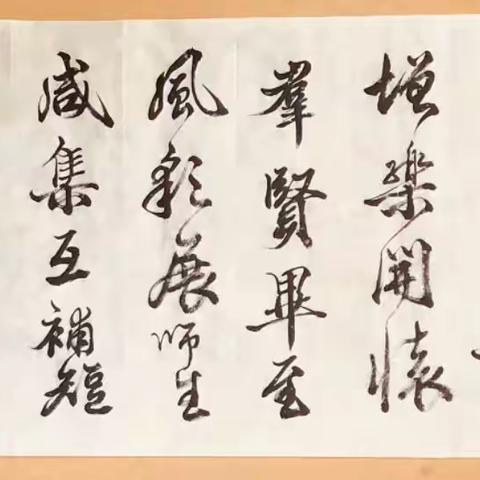 增樂開懷
羣賢畢至
風彩展师生
咸集互補短